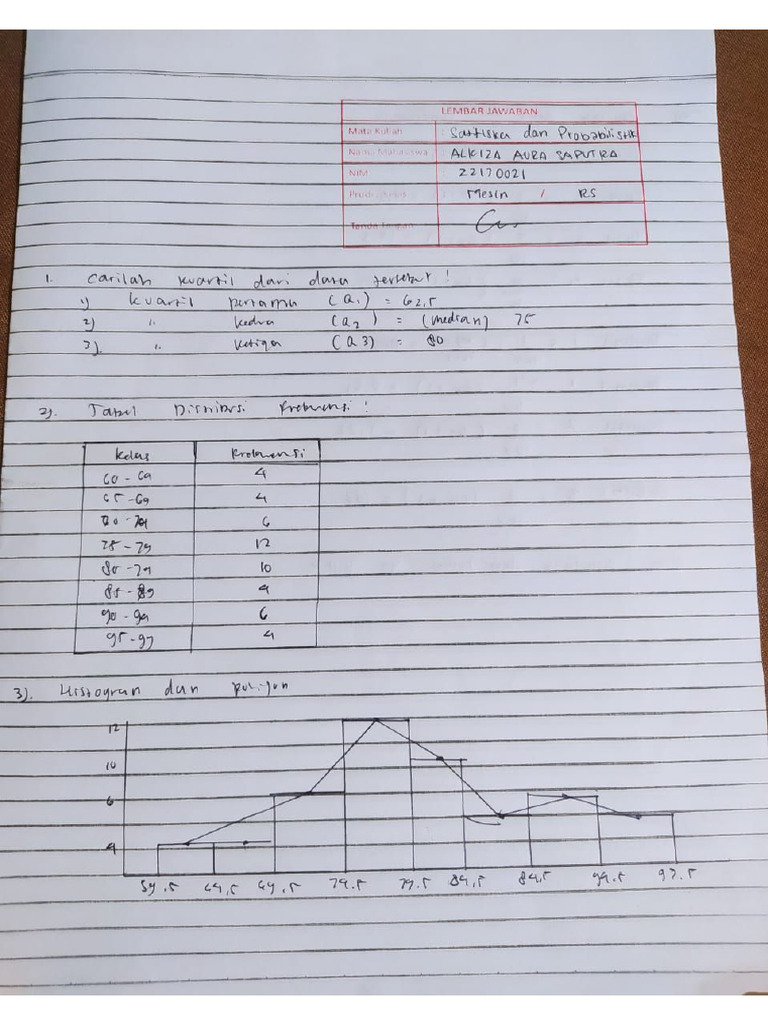 LEMBAR JAWABAN
Mata Kuliah : Satfiska dan Probabilistik
Nama Mahasiswa : ALKIZA AURA SAPUTRA
NIM : 22170021
Mesin / RS
Tanda Tangan
1. Carilah kuartil dari data tersebut !
1) kuartil pertama (Q1) = 62,5
2) " kedua (Q2) = (median) 75
3). " ketiga (Q3) = 80
2). Tabel Distribusi frekuensi !
Kelas Frekuensi
60 - 69 4
65 - 69 4
70 - 79 6
75 - 79 12
80 - 79 10
85 - 89 4
90 - 99 6
95 - 97 4
3). Histogran dan poligon
12
10
6
4
59.5 64,5 69,5 74.5 79.5 84,5 89,5 94.5 97.5